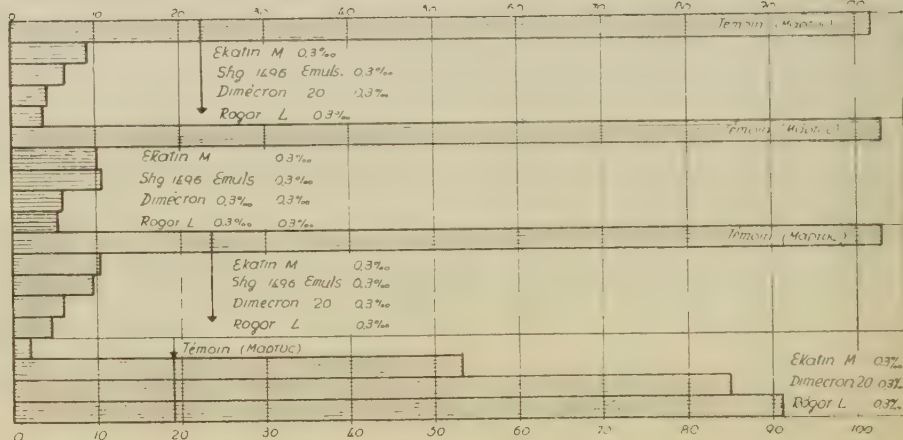 0 10 20 30 40 50 60 70 80 90 100
Témoin (Μάρτυς)
Ekatin M 0.3‰
Shg 1496 Emuls. 0.3‰
Dimécron 20 0.3‰
Rogor L 0.3‰
Témoin (Μάρτυς)
Ekatin M 0.3‰
Shg 1496 Emuls 0.3‰
Dimécron 0.3‰ 0.3‰
Rogor L 0.3‰ 0.3‰
Témoin (Μάρτυς)
Ekatin M 0.3‰
Shg 1496 Emuls 0.3‰
Dimecron 20 0.3‰
Rogor L 0.3‰
Témoin (Μάρτυς)
Ekatin M 0.3‰
Dimecron 20 0.3‰
Rogor L 0.3‰
0 10 20 30 40 50 60 70 80 90 100